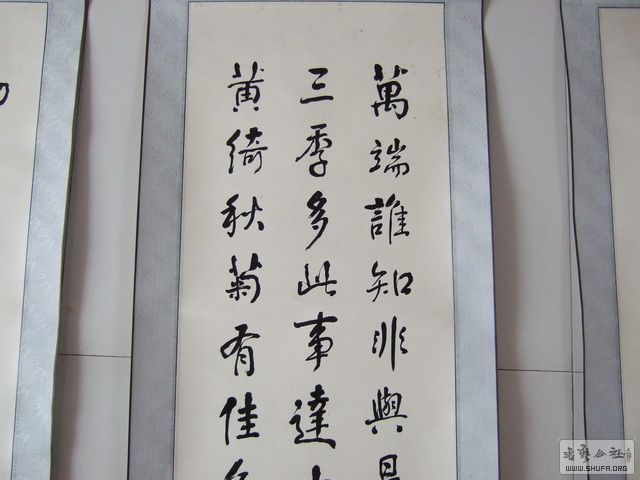 萬端誰知非與是
三季多此事達士
黄綺秋菊有佳色
書法公社
WWW.SHUFA.ORG